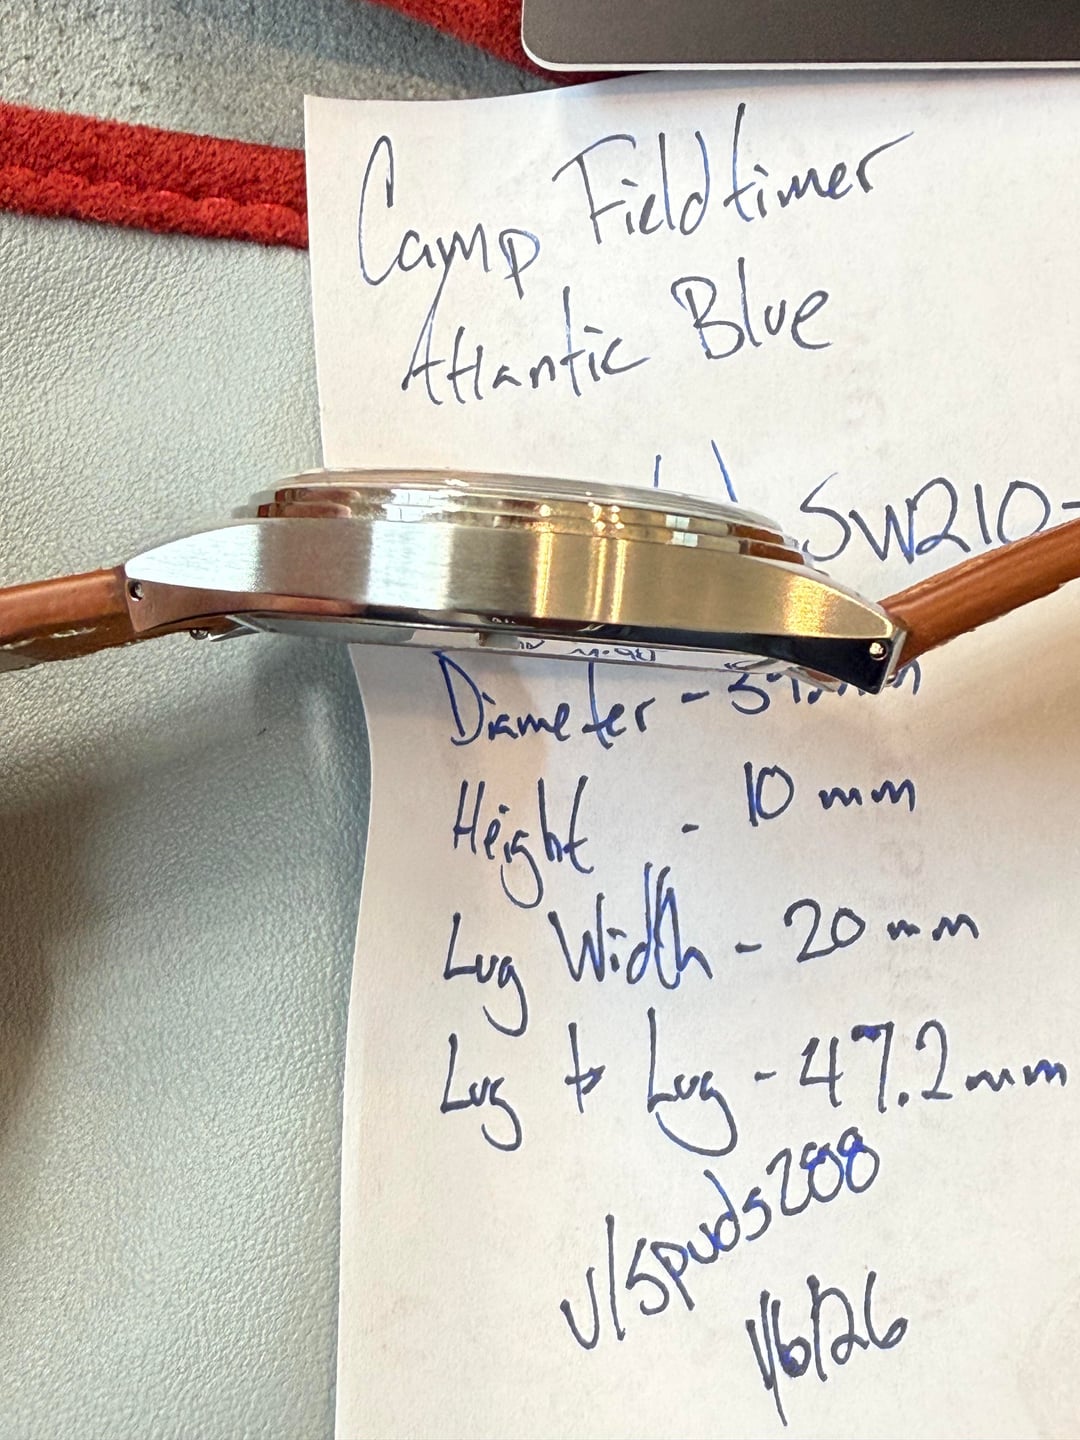 Camp Fieldtimer
Atlantic Blue
SW210-
Diameter -
Height - 10 mm
Lug Width - 20 mm
Lug to Lug - 47.2mm
u/spuds288
1/6/26